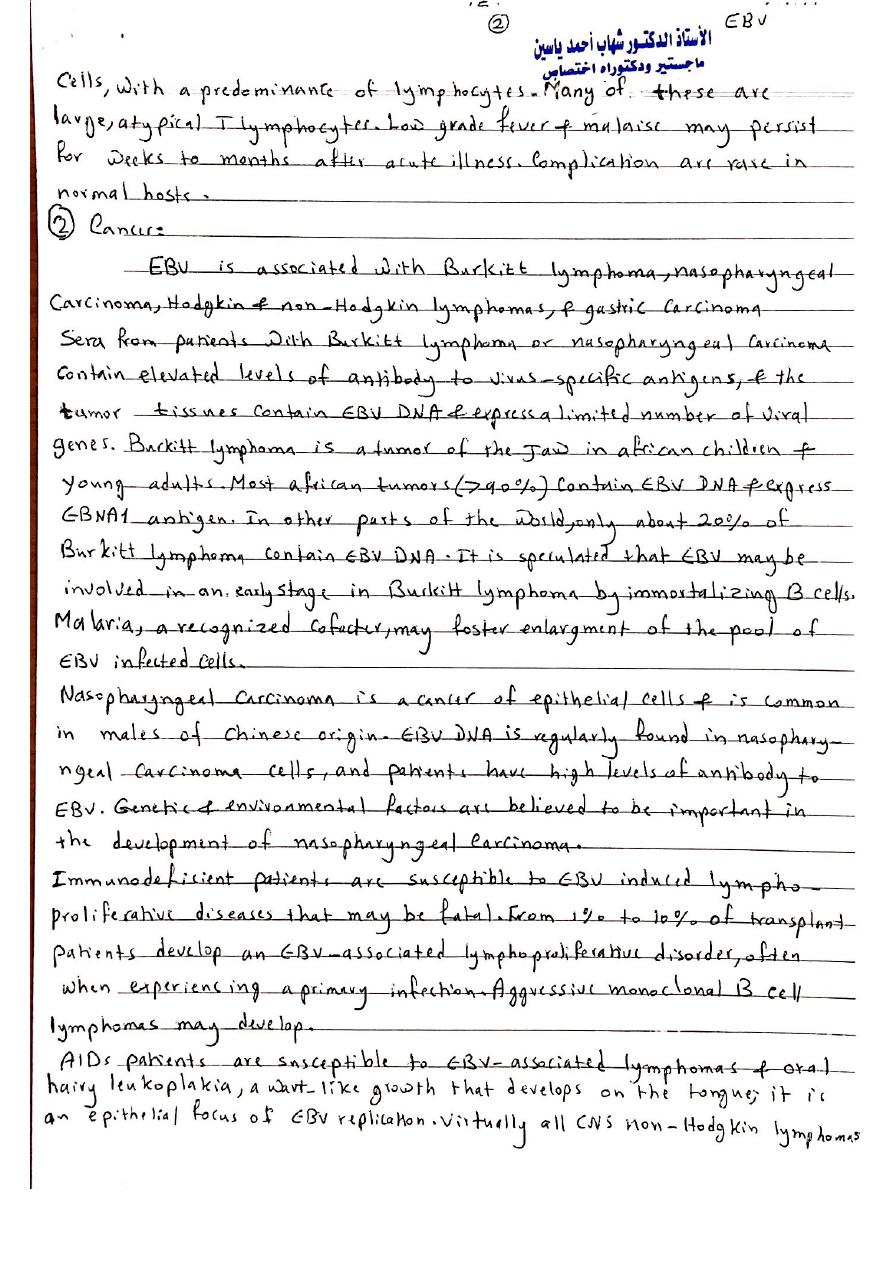 ② EBV
الأستاذ الدكتور شهاب أحمد ياسين
ماجستير ودكتوراه اختصاص
Cells, with a predominance of lymphocytes. Many of these are
large, atypical T lymphocytes. Low grade fever & malaise may persist
for weeks to months after acute illness. Complication are rare in
normal hosts.
② Cancer:
EBV is associated with Burkitt lymphoma, nasopharyngeal
Carcinoma, Hodgkin & non-Hodgkin lymphomas, & gastric carcinoma
Sera from patients with Burkitt lymphoma or nasopharyngeal carcinoma
contain elevated levels of antibody to virus-specific antigens, & the
tumor tissues contain EBV DNA & express a limited number of viral
genes. Burkitt lymphoma is a tumor of the Jaw in african children &
young adults. Most african tumors (>90%) contain EBV DNA & express
EBNA1 antigen. In other parts of the world, only about 20% of
Burkitt lymphoma contain EBV DNA. It is speculated that EBV may be
involved in an early stage in Burkitt lymphoma by immortalizing B cells.
Malaria, a recognized cofactor, may foster enlargment of the pool of
EBV infected cells.
Nasopharyngeal Carcinoma is a cancer of epithelial cells & is common
in males of Chinese origin. EBV DNA is regularly found in nasophary-
ngeal carcinoma cells, and patients have high levels of antibody to
EBV. Genetic & environmental factors are believed to be important in
the development of nasopharyngeal carcinoma.
Immunodeficient patients are susceptible to EBV induced lympho-
proliferative diseases that may be fatal. From 1% to 10% of transplant
patients develop an EBV-associated lymphoproliferative disorder, often
when experiencing a primary infection. Aggressive monoclonal B cell
lymphomas may develop.
AIDs patients are susceptible to EBV-associated lymphomas & oral
hairy leukoplakia, a wart-like growth that develops on the tongue; it is
an epithelial focus of EBV replication. Virtually all CNS non-Hodgkin lymphomas